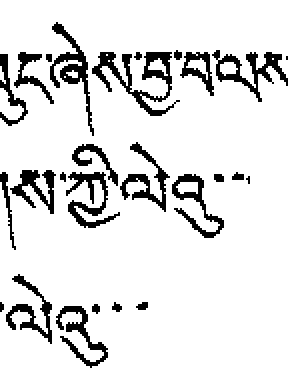 ཞེས་བྱ་བ་ལས
ས་ཀྱི་ལེའུ་་་
་ལེའུ་་་